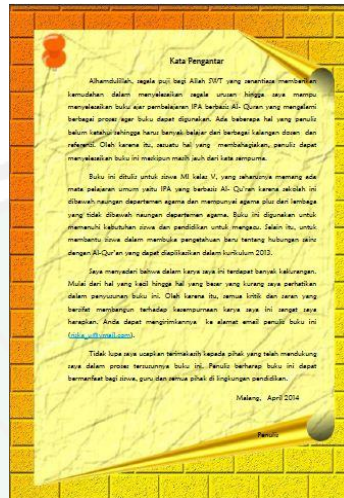 Kata Pengantar
Alhamdulillah, segala puji bagi Allah SWT yang senantiasa memberikan
kemudahan dalam menyelesaikan segala urusan hingga saya mampu
menyelesaikan buku ajar pembelajaran IPA berbasis Al- Quran yang mengalami
berbagai proses agar buku dapat digunakan. Ada beberapa hal yang penulis
belum ketahui sehingga harus banyak belajar dari berbagai kalangan dosen dan
referensi. Oleh karena itu, sesuatu hal yang membahagiakan, penulis dapat
menyelesaikan buku ini meskipun masih jauh dari kata sempurna.
Buku ini ditulis untuk siswa MI kelas V, yang seharusnya memang ada
mata pelajaran umum yaitu IPA yang berbasis Al- Qu'ran karena sekolah ini
dibawah naungan departemen agama dan mempunyai agama plus dari lembaga
yang tidak dibawah naungan departemen agama. Buku ini digunakan untuk
memenuhi kebutuhan siswa dan pendidikan untuk mengacu. Selain itu, untuk
membantu siswa dalam membuka pengetahuan baru tentang hubungan sains
dengan Al-Qur'an yang dapat diaplikasikan dalam kurikulum 2013.
Saya menyadari bahwa dalam karya saya ini terdapat banyak kekurangan.
Mulai dari hal yang kecil hingga hal yang besar yang kurang saya perhatikan
dalam penyusunan buku ini. Oleh karena itu, semua kritik dan saran yang
bersifat membangun terhadap kesempurnaan karya saya ini sangat saya
harapkan. Anda dapat mengirimkannya ke alamat email penulis buku ini
Tidak lupa saya ucapkan terimakasih kepada pihak yang telah mendukung
saya dalam proses tersusunnya buku ini. Penulis berharap buku ini dapat
bermanfaat bagi siswa, guru dan semua pihak di lingkungan pendidikan.
Malang, April 2014
Penulis